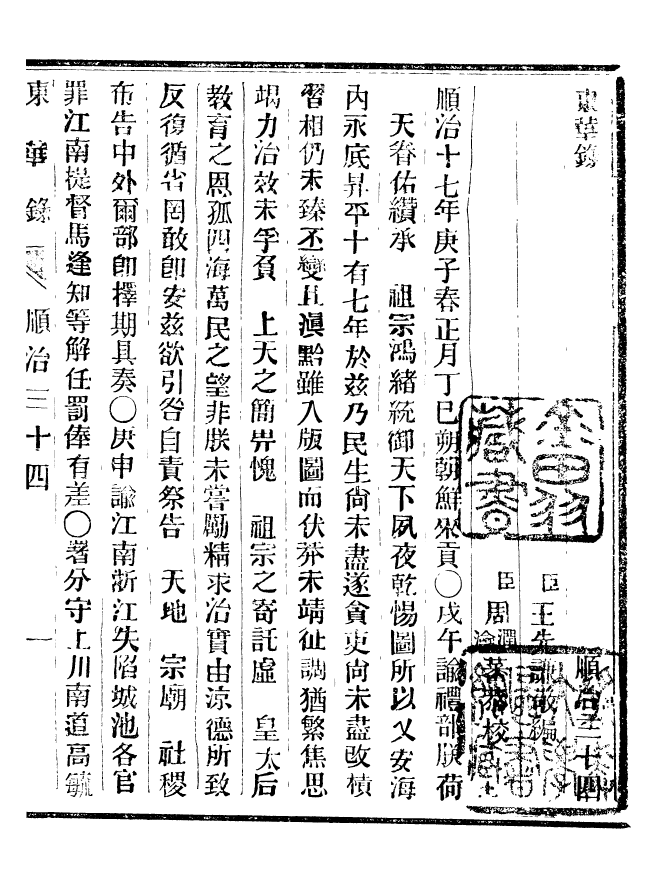 東華錄
順治三十四
臣王先謙敬編
臣周潤蕃
瀹蕃校
順治十七年庚子春正月丁巳朔朝鮮來貢〇戊午諭禮部朕荷
天眷佑纘承 祖宗鴻緒統御天下夙夜乾惕圖所以乂安海
內永底昇平十有七年於茲乃民生尙未盡遂貪吏尙未盡改橫
習相仍未臻丕變且滇黔雖入版圖而伏莽未靖征調猶繁焦思
竭力治效未孚負 上天之簡畀愧 祖宗之寄託虛 皇太后
教育之恩孤四海萬民之望非朕未嘗勵精求治實由涼德所致
反復循省罔敢卽安茲欲引咎自責祭告 天地 宗廟 社稷
布告中外爾部卽擇期具奏〇庚申諭江南浙江失陷城池各官
罪江南提督馬逢知等解任罰俸有差〇著分守上川南道高毓
東華錄 順治三十四 一